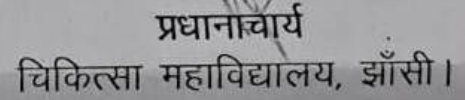 प्रधानाचार्य
चिकित्सा महाविद्यालय, झाँसी।